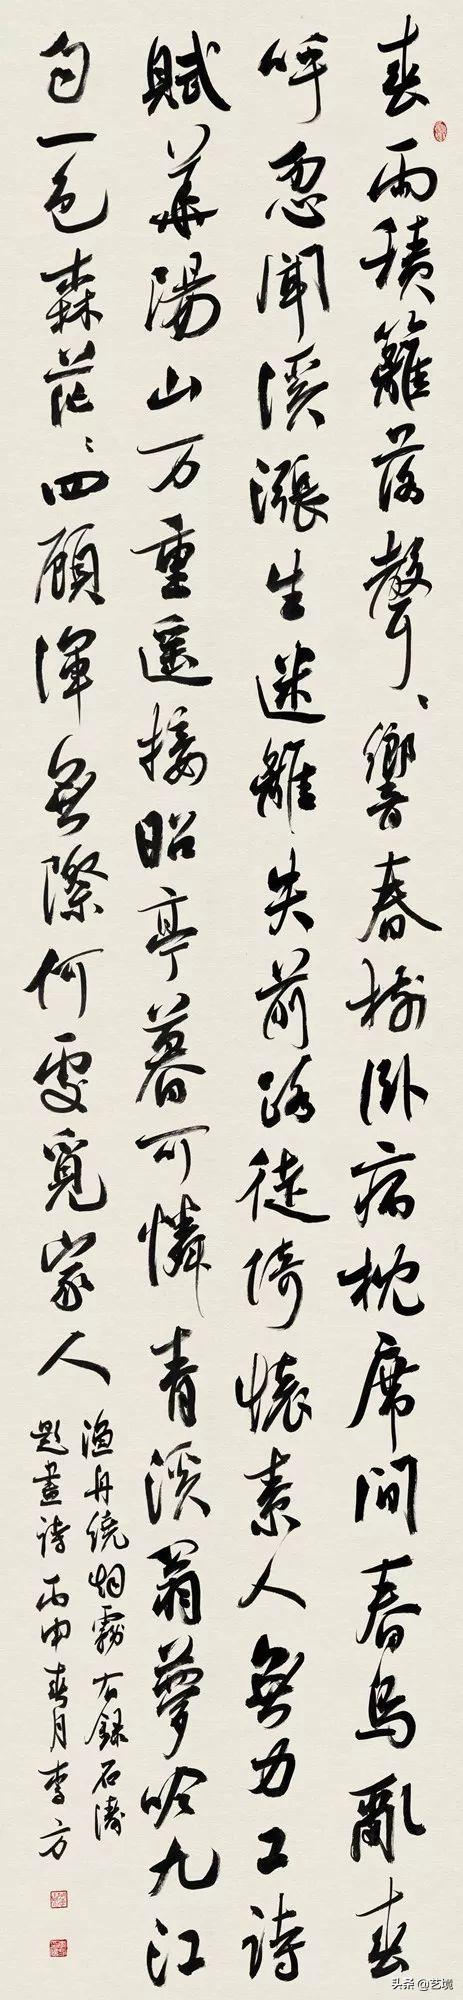 春雨積籬落聲〻響春樹臥病枕席間春鳥亂春
呼忽聞溪漲生迷離失前路徒倚懷素人無力工詩
賦華陽山万重遥接昭亭暮可憐青溪翁夢吟九江
句一色森茫〻四顧渾無際何處覓家人
漁舟繞烟霧 右錄石濤
題畫詩 丙申春月李方
头条@艺境